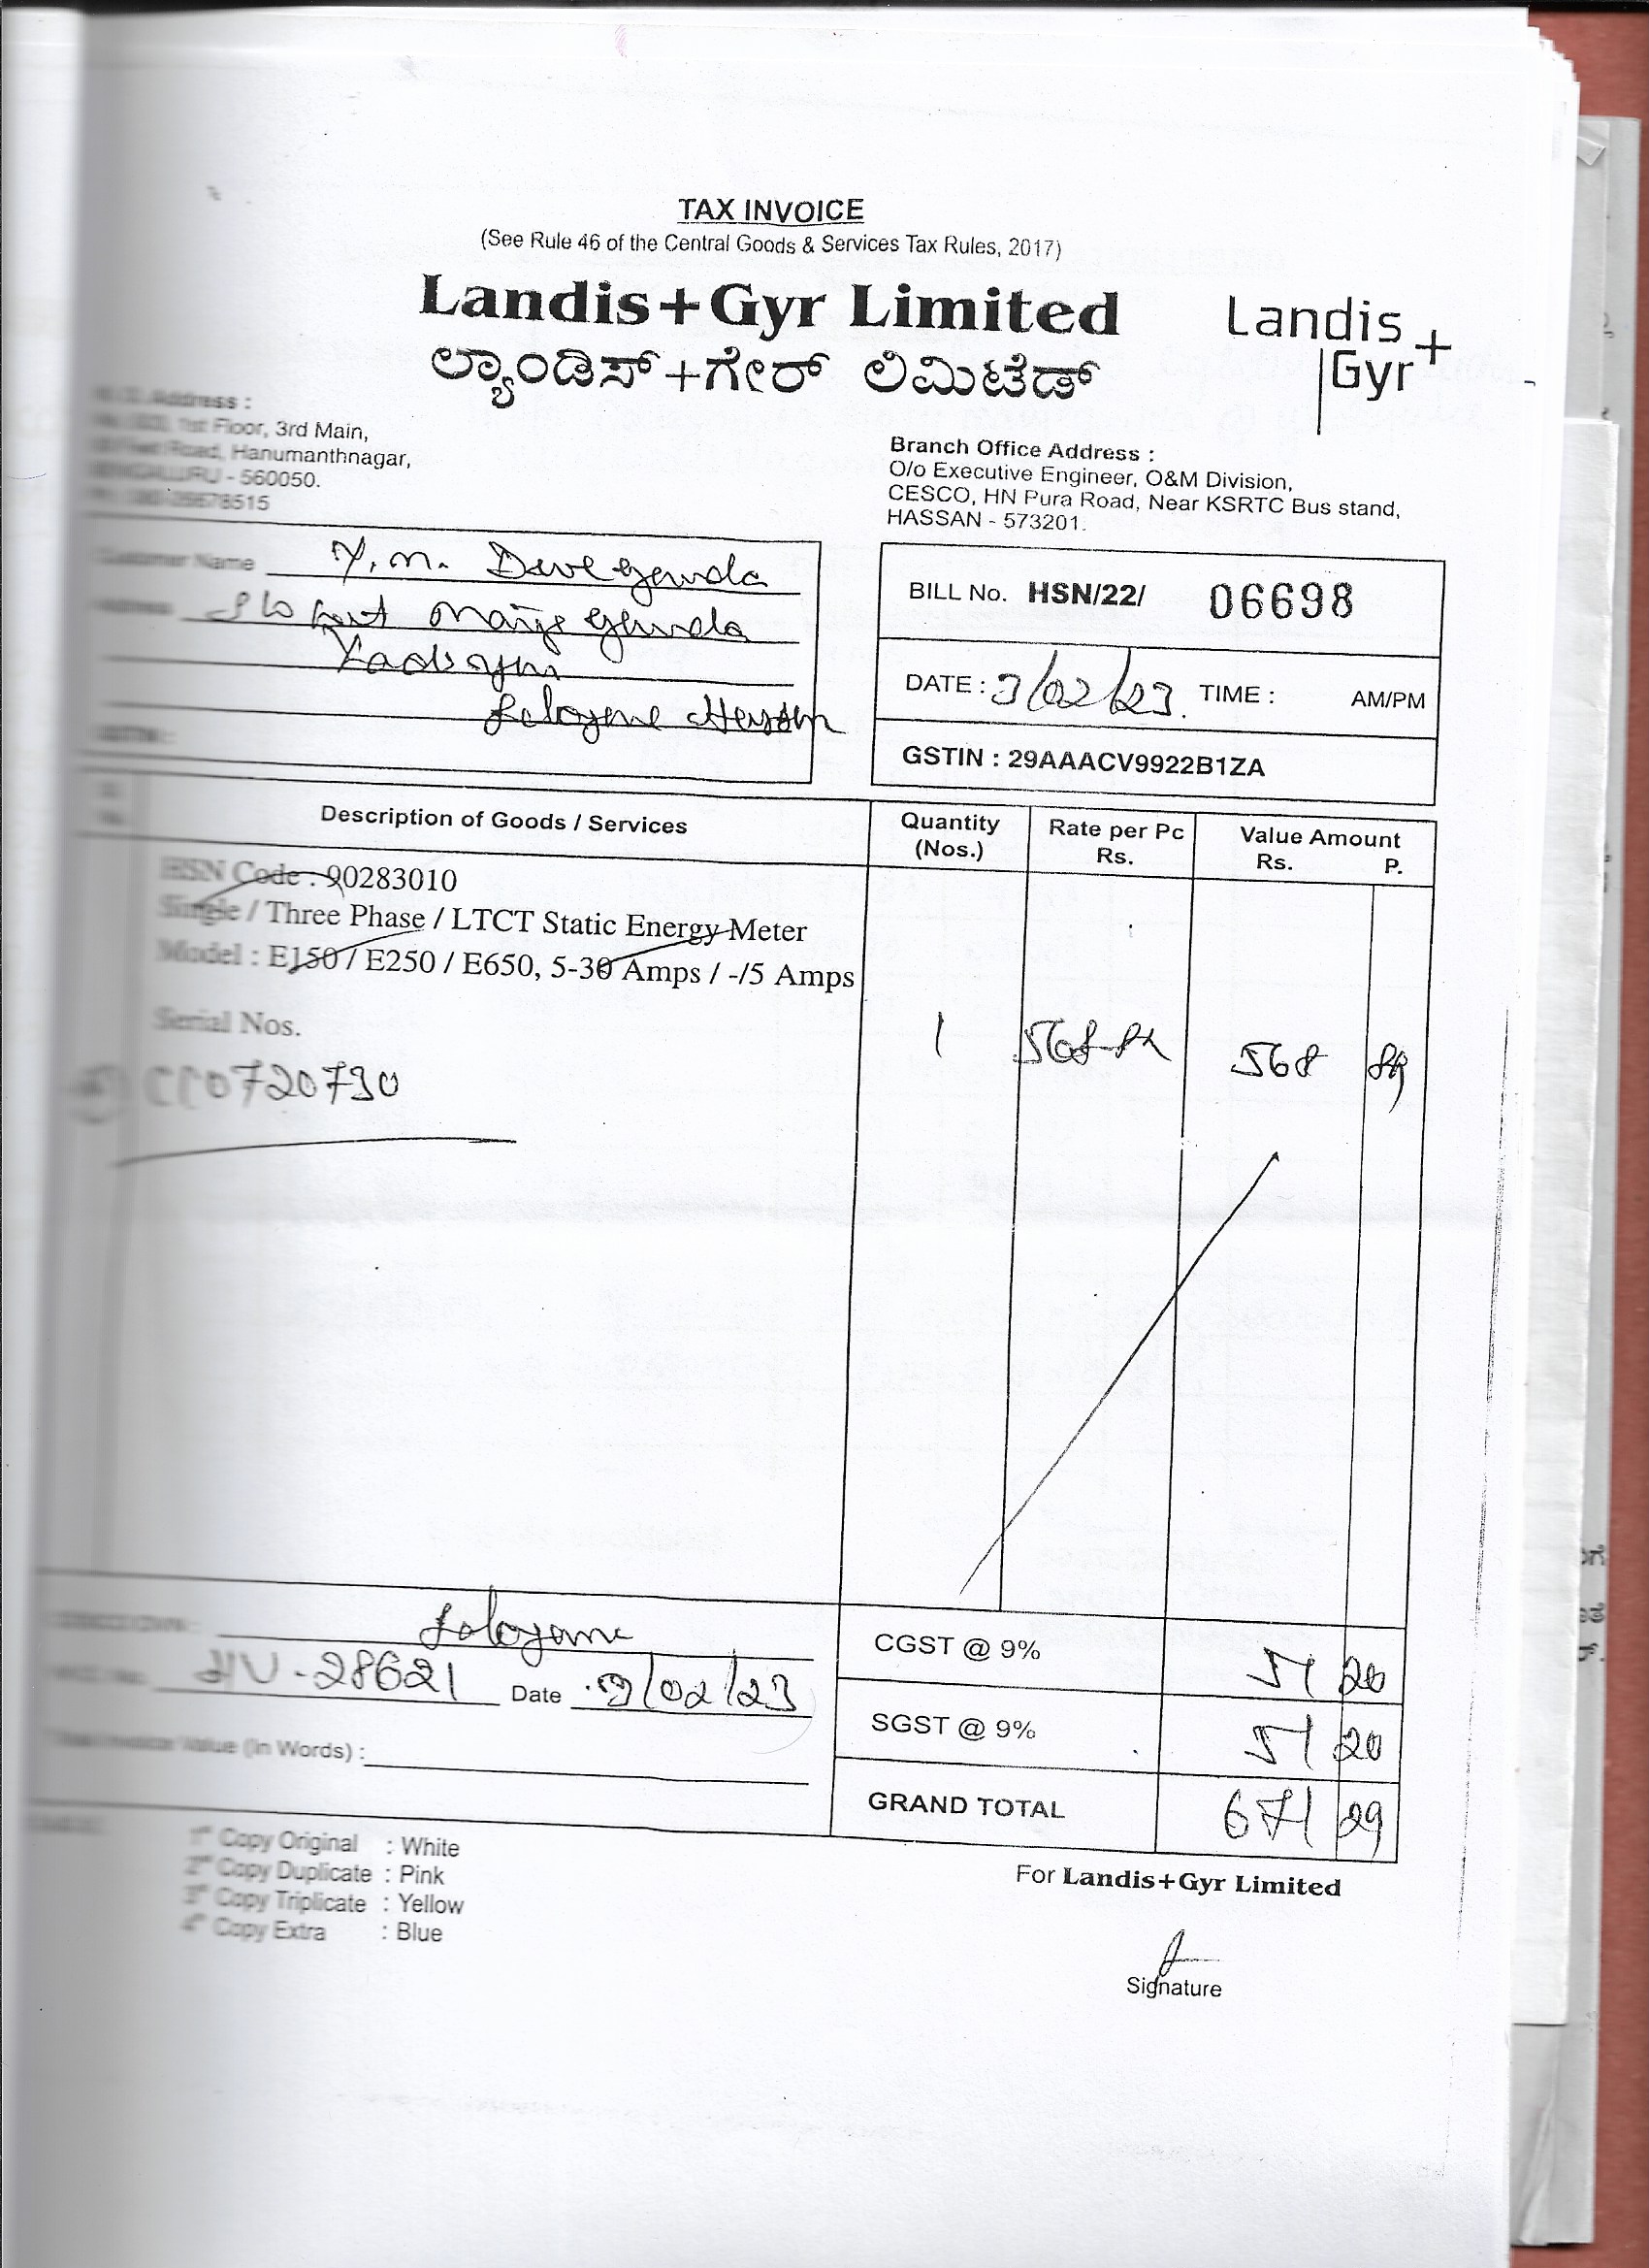 TAX INVOICE
(See Rule 46 of the Central Goods & Services Tax Rules, 2017)
Landis+Gyr Limited
ಲ್ಯಾಂಡಿಸ್+ಗೇರ್ ಲಿಮಿಟೆಡ್
Landis+
Gyr
Address :
1st Floor, 3rd Main,
Road, Hanumanthnagar,
BENGALURU - 560050.
Branch Office Address :
O/o Executive Engineer, O&M Division,
CESCO, HN Pura Road, Near KSRTC Bus stand,
HASSAN - 573201.
Customer Name Y.M. Devegowda
Address
BILL No. HSN/22/ 06698
DATE : 3/02/23. TIME : AM/PM
GSTIN :
GSTIN : 29AAACV9922B1ZA
Description of Goods / Services
Quantity (Nos.)
Rate per Pc Rs.
Value Amount Rs. P.
HSN Code : 90283010
Single / Three Phase / LTCT Static Energy Meter
Model : E150 / E250 / E650, 5-30 Amps / -/5 Amps
Serial Nos.
1 568 568 89
0720730
28621 Date 3/02/23
CGST @ 9% 51 20
SGST @ 9% 51 20
Total Invoice Value (In Words) :
GRAND TOTAL 671 29
1st Copy Original : White
2nd Copy Duplicate : Pink
3rd Copy Triplicate : Yellow
4th Copy Extra : Blue
For Landis+Gyr Limited
Signature